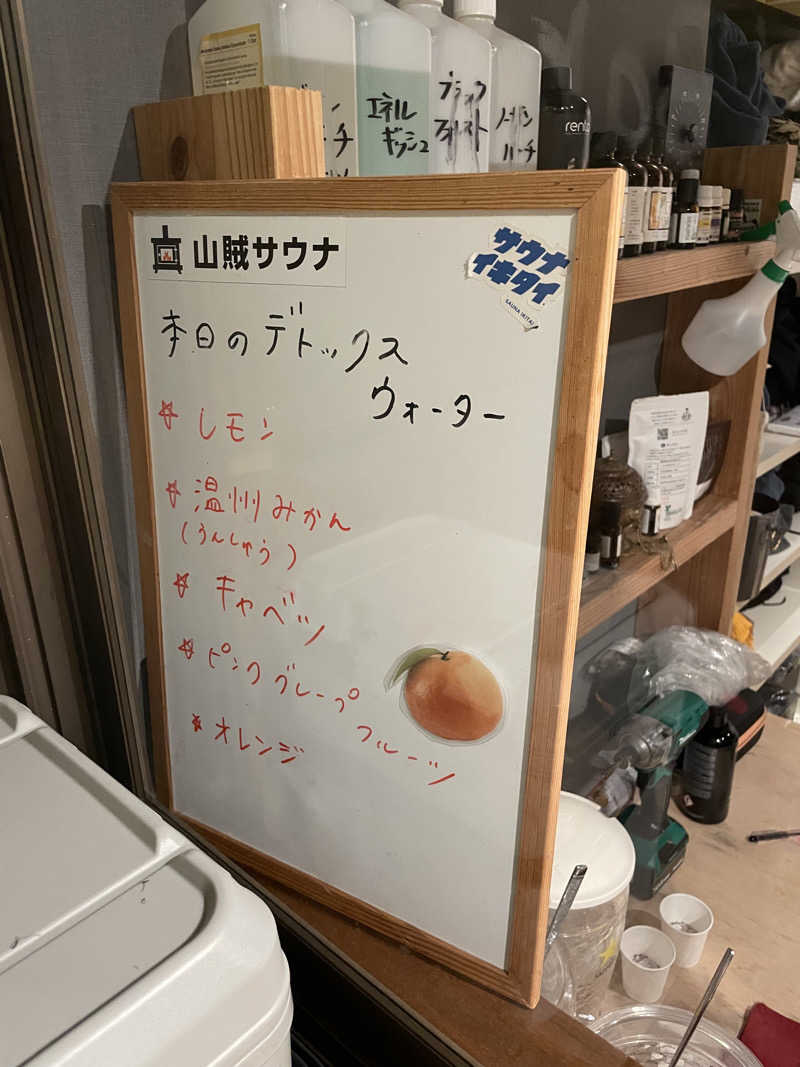 エネル
ギッシュ
ブラック
フォレスト
ノーザン
バーチ
rento
山賊サウナ
サウナ
イキタイ
SAUNA IKITAI
本日のデトックス
ウォーター
☆ レモン
☆ 温州みかん
(うんしゅう)
☆ キャベツ
☆ ピンクグレープ
フルーツ
☆ オレンジ